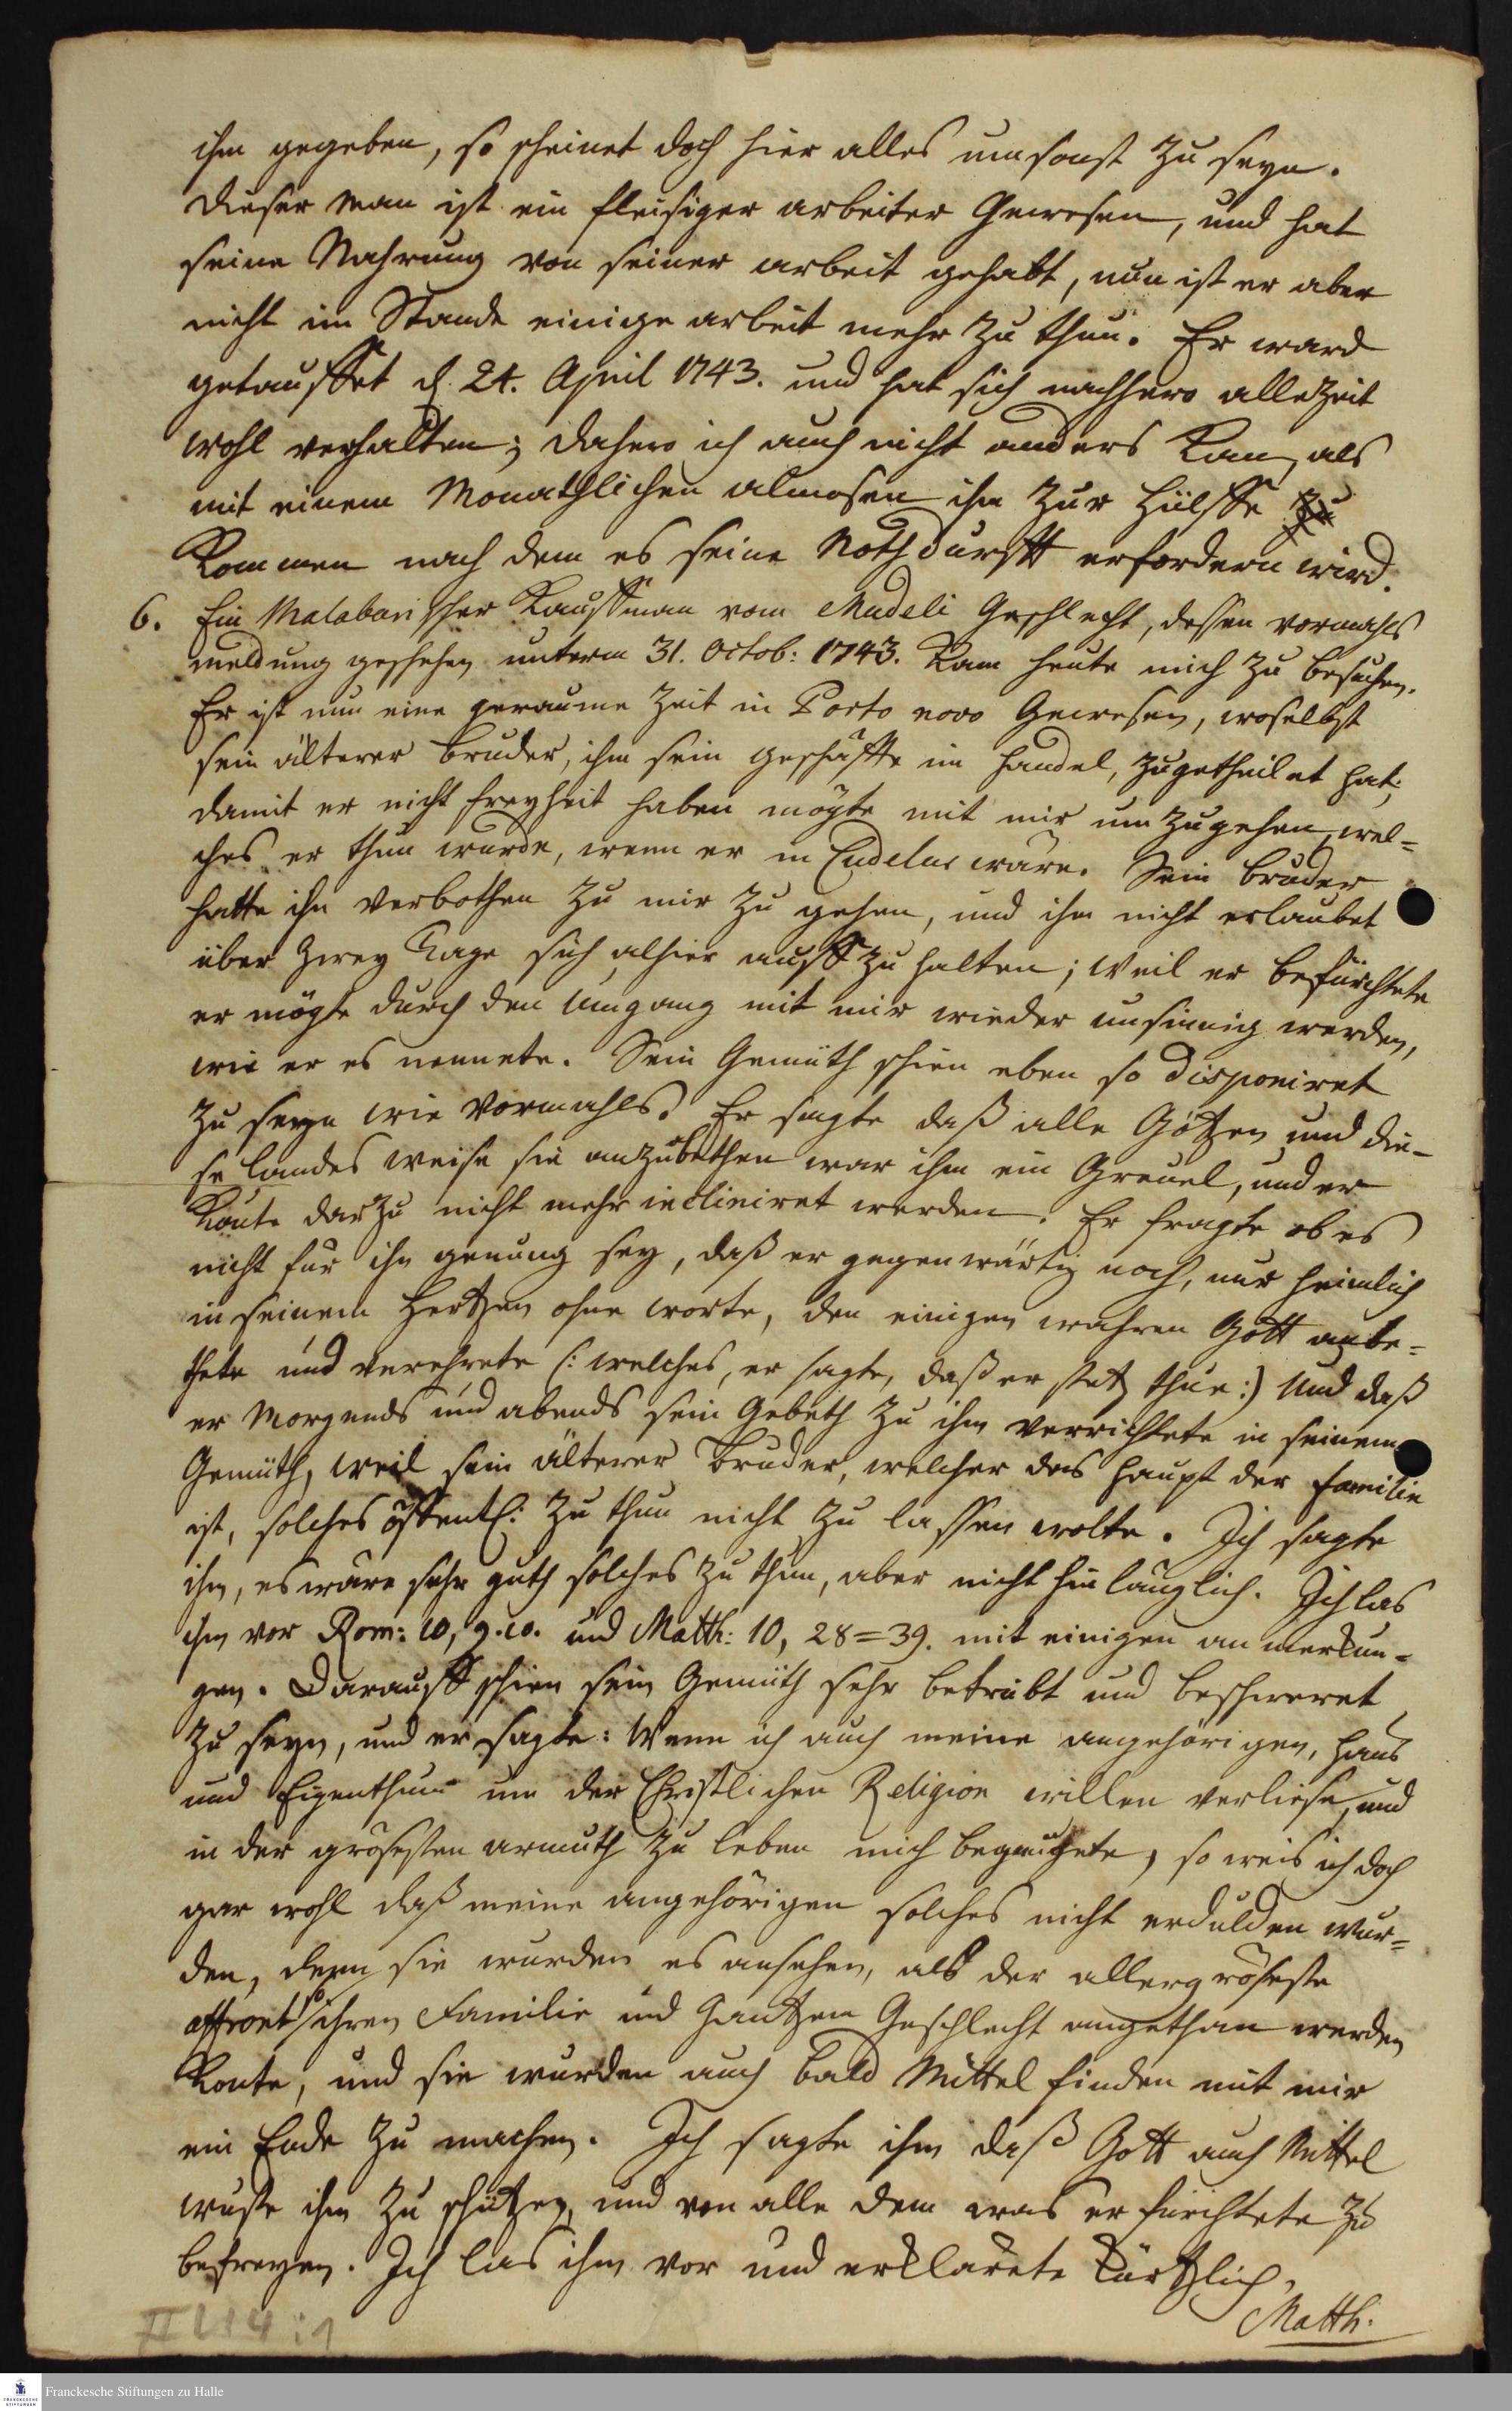 ihm gegeben, so scheinet doch hier alles umsonst zu seyn.
Dieser Man ist ein fleisiger arbeiter Gewesen, und hat
seine Nahrung von seiner arbeit gehabt, nun ist er aber
nicht im Stande einige arbeit mehr zu thun. Er ward
getauffet d. 24. April 1743. und hat sich nachhero allezeit
wohl verhalten; dahero ich auch nicht anders Kan, als
mit einem Monathlichen almosen ihm zur Hülffe zu
Kommen nach dem es seine Nothdurfft erfordern wird.
6. Ein Malabarischer Kauffman vom Mudeli Geschlecht, dessen vormahls
meldung geschehen unterm 31. Octob: 1743. Kam heute mich zu besuchen.
Er ist nun eine geraume Zeit in Porto novo Gewesen, woselbst
sein älterer bruder, ihm sein geschäffte im Handel, zugetheilet hat;
damit er nicht freyheit haben mögte mit mir umzugehen, wel=
ches er thun wurde, wenn er in Cudelur wäre. Sein bruder
hatte ihn verbothen zu mir zu gehen, und ihm nicht erlaubet
über zwey Tage sich alhier auff zu halten; weil er befürchtete
er mögte durch den Umgang mit mir wieder unsinnig werden,
wie er es nennete. Sein Gemüth schien eben so disponiret
zu seyn wie vormahls. Er sagte daß alle Götzen und die=
se landes weise sie anzubethen war ihm ein Greuel, und er
Konte darzu nicht mehr incliniret werden. Er fragte ob es
nicht für ihn genung sey, daß er gegenwärtig noch, nur heimlich
in seinem Hertzen ohne worte, den einigen wahren Gott anbe=
thete und verehrete (: welches, er sagte, daß er stets thue:) Und daß
er Morgends und abends sein Gebeth zu ihm verrichtete in seinem
Gemüth, weil sein älterer Bruder, welcher das Haupt der familie
ist, solches öffentl: zu thun nicht zu lassen wolte. Ich sagte
ihm, es wäre sehr guth solches zu thun, aber nicht hinlänglich. Ich las
ihm vor Rom: 10, 9.10. und Matth: 10, 28=39. mit einigen anmerkun=
gen. Darauff schien sein Gemüth sehr betrübt und beschweret
zu seyn, und er sagte: Wenn ich auch meine angehörigen, Haus
und Eigenthum um der Christlichen Religion willen verliese, und
in der grösesten armuth zu leben mich begnügete, so weis ich doch
gar wohl daß meine angehörigen solches nicht erdulden wur=
den, denn sie wurden es ansehen, als der allergröseste
affront so ihren Familie und Gantzen Geschlecht angethan werden
Konte, und sie wurden auch bald Mittel finden mit mir
ein Ende zu machen. Ich sagte ihm daß Gott auch Mittel
wuste ihm zu schützen, und von alle dem was er fürchtete zu
befreyen. Ich las ihm vor und erklärete kürtzlich,
Matth.
II L14:1
Franckesche Stiftungen zu Halle